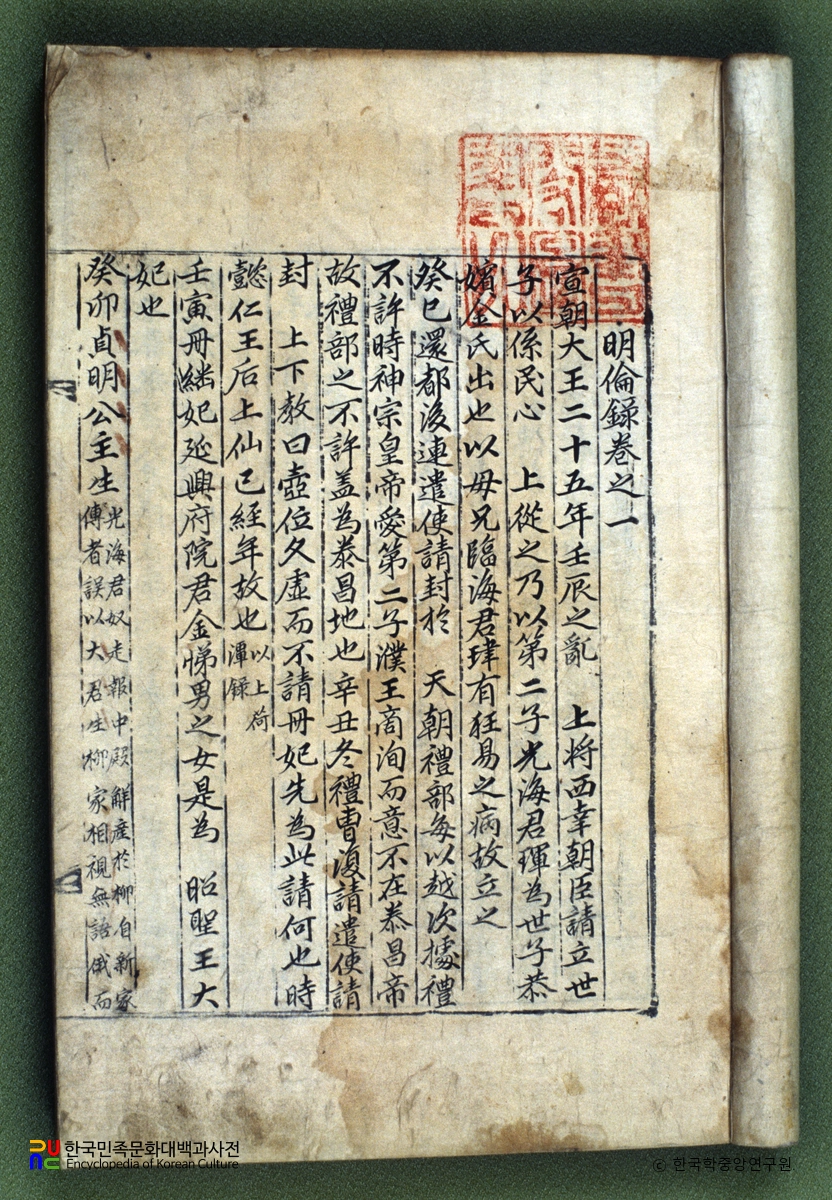 明倫錄卷之一
宣朝大王二十五年壬辰之亂 上將西幸朝臣請立世
子以係民心 上從之乃以第二子光海君琿為世子恭
嬪金氏出也以母兄臨海君珒有狂易之病故立之
癸巳還都後連遣使請封於 天朝禮部每以越次據禮
不許時神宗皇帝愛第二子濮王商洵而意不在泰昌帝
故禮部之不許盖為泰昌地也辛丑冬禮曹復請遣使請
封 上下教曰壼位久虛而不請冊妃先為此請何也時
懿仁王后上仙已經年故也以上荷
潭錄
壬寅冊繼妃延興府院君金悌男之女是為 昭聖王大
妃也
癸卯貞明公主生光海君奴走報中殿觧產於柳自新家
傳者誤以大君生柳家相視無語俄而
한국민족문화대백과사전
Encyclopedia of Korean Culture
© 한국학중앙연구원